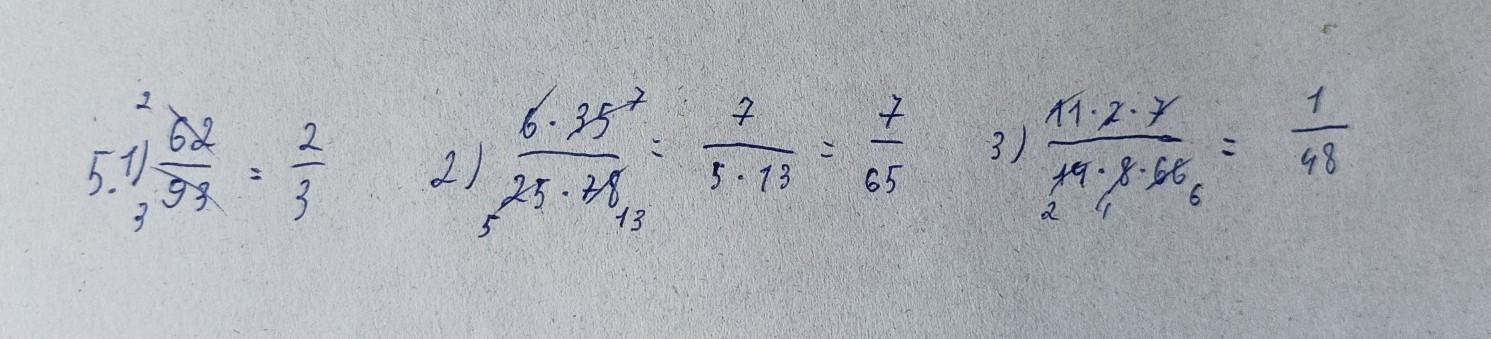 5. 1) 62/93 = 2/3 2) 6·35/25·78 = 7/5·13 = 7/65 3) 11·2·7/14·8·66 = 1/48